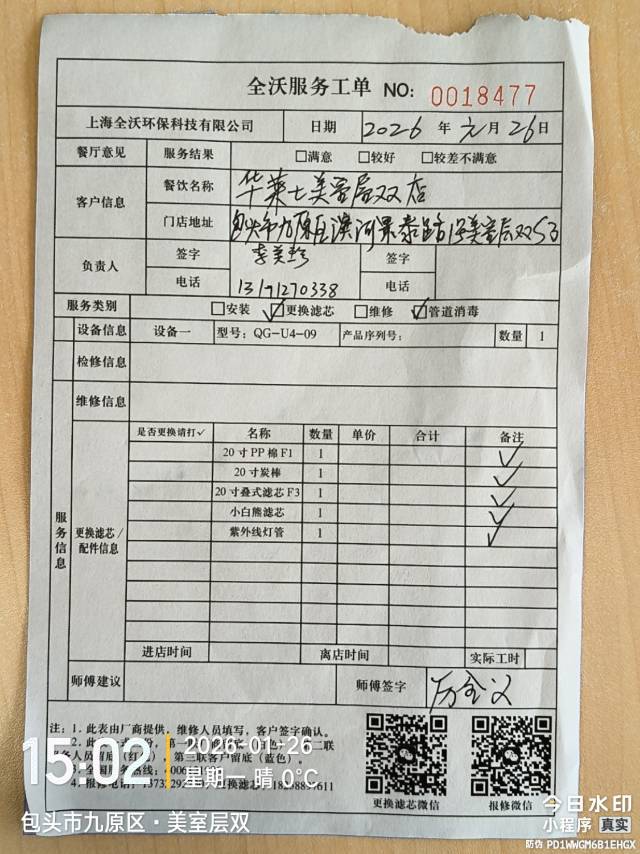 全沃服务工单 NO: 0018477
上海全沃环保科技有限公司 日期 2026 年 元 月 26 日
餐厅意见 服务结果 □满意 □较好 □较差不满意
客户信息 餐饮名称 华莱士美室层双店
门店地址 包头市九原区滨河景泰路 美室层双
负责人 签字 李美玲 签字
电话 13191270338 电话
服务类别 □安装 ☑更换滤芯 □维修 ☑管道消毒
设备信息 设备一 型号: QG-U4-09 产品序列号: 数量 1
检修信息
维修信息
服务信息 更换滤芯/配件信息 是否更换请打✓ 名称 数量 单价 合计 备注
20寸PP棉F1 1 ✓
20寸炭棒 1 ✓
20寸叠式滤芯F3 1 ✓
小白熊滤芯 1 ✓
紫外线灯管 1 ✓
进店时间 离店时间 实际工时
师傅建议 师傅签字
注: 1. 此表由厂商提供, 维修人员填写, 客户签字确认。
2. 此 第一 二联
务人员留底 第三联客户留底(蓝色)。
3. 全国服务热线:
4. 报修电话:
更换滤芯微信 报修微信
15:02 2026-01-26
星期一 晴 0℃
包头市九原区·美室层双
今日水印
小程序 真实
防伪 PD1WWGM6B1EHGX